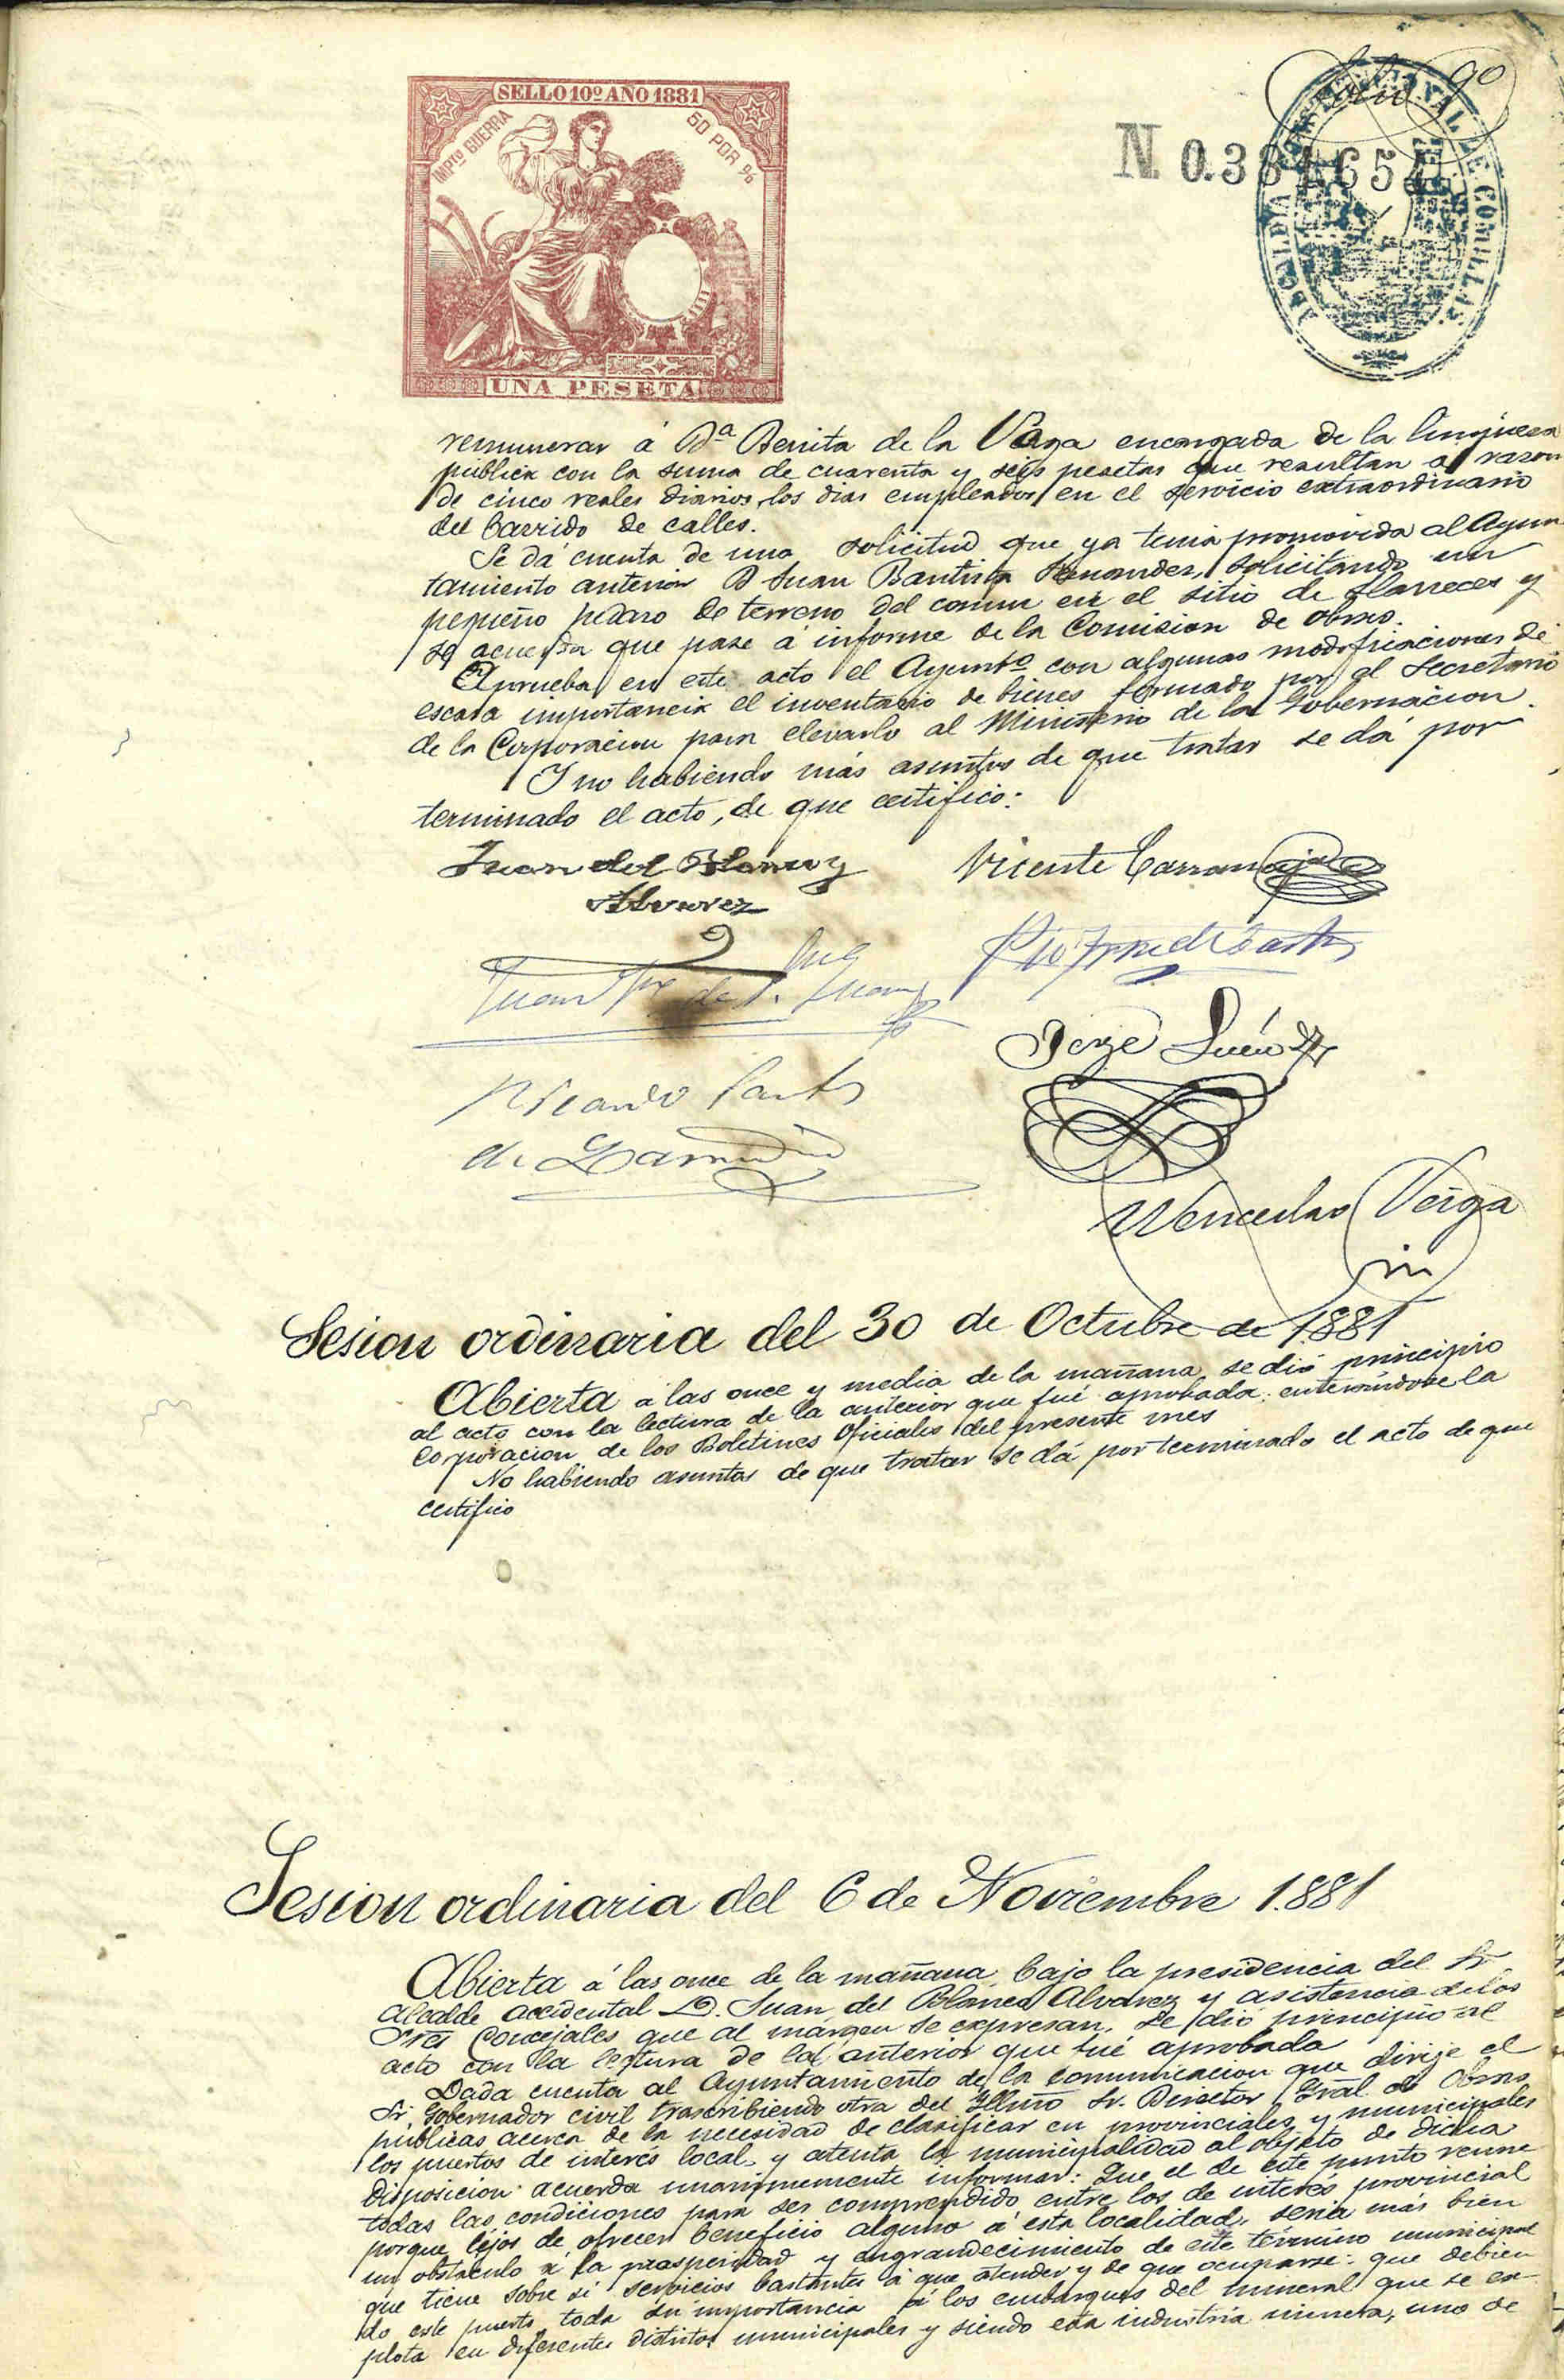 SELLO 10º AÑO 1881
IMPTO GUERRA
50 POR %
UNA PESETA
Folio 90
N. 0.384.654
ALCALDIA CONSTITUCIONAL DE COMILLAS
remunerar á Dª Benita de la Vega encargada de la limpieza
publica con la suma de cuarenta y seis pesetas que resultan a razon
de cinco reales diarios, los dias empleados en el servicio extraordinario
del barrido de calles.
Se dá cuenta de una solicitud que ya tenia promovida al Ayun
tamiento anterior D Juan Bautista Fernandez, solicitando un
pequeño pedazo de terreno del comun en el sitio de Llaneces y
se acuerda que pase á informe de la Comision de obras.
Aprueba en este acto el Ayuntº con algunas modificaciones de
escasa importancia el inventario de bienes formado por el Secretario
de la Corporacion para elevarlo al Ministerio de la Gobernacion.
Y no habiendo más asuntos de que tratar se dá por
terminado el acto, de que certifico:
Juan del Blanco y
Alvarez
Vicente Carranceja
Juan
Jorge
Ricardo
de
Wenceslao Veiga
Sesion ordinaria del 30 de Octubre de 1881
Abierta á las once y media de la mañana se dió principio
al acto con la lectura de la anterior que fué aprobada: enterándose la
Corporacion de los Boletines Oficiales del presente mes
No habiendo asuntos de que tratar se dá por terminado el acto de que
certifico
Sesion ordinaria del 6 de Noviembre 1.881
Abierta á las once de la mañana bajo la presidencia del Sr
Alcalde accidental D. Juan del Blanco Alvarez y asistencia de los
Sres Concejales que al márgen se expresan, se dió principio al
acto con la lectura de la anterior que fué aprobada
Dada cuenta al Ayuntamiento de la comunicacion que dirije el
Sr. Gobernador civil trascribiendo otra del Yllmo Sr. Director Gral. de Obras
publicas acerca de la necesidad de clasificar en provinciales y municipales
los puertos de interés local, y atenta la municipalidad al objeto de dicha
disposicion acuerda unanimemente informar: Que el de este punto reune
todas las condiciones para ser comprendido entre los de interés provincial
porque léjos de ofrecer beneficio alguno á esta localidad, seria más bien
un obstáculo á la prosperidad y engrandecimiento de este término municipal
que tiene sobre si servicios bastantes á que atender y de que ocuparse: que debien
do este puerto toda su importancia á los embarques del mineral que se ex
plota en diferentes distritos municipales y siendo esta industria minera, uno de